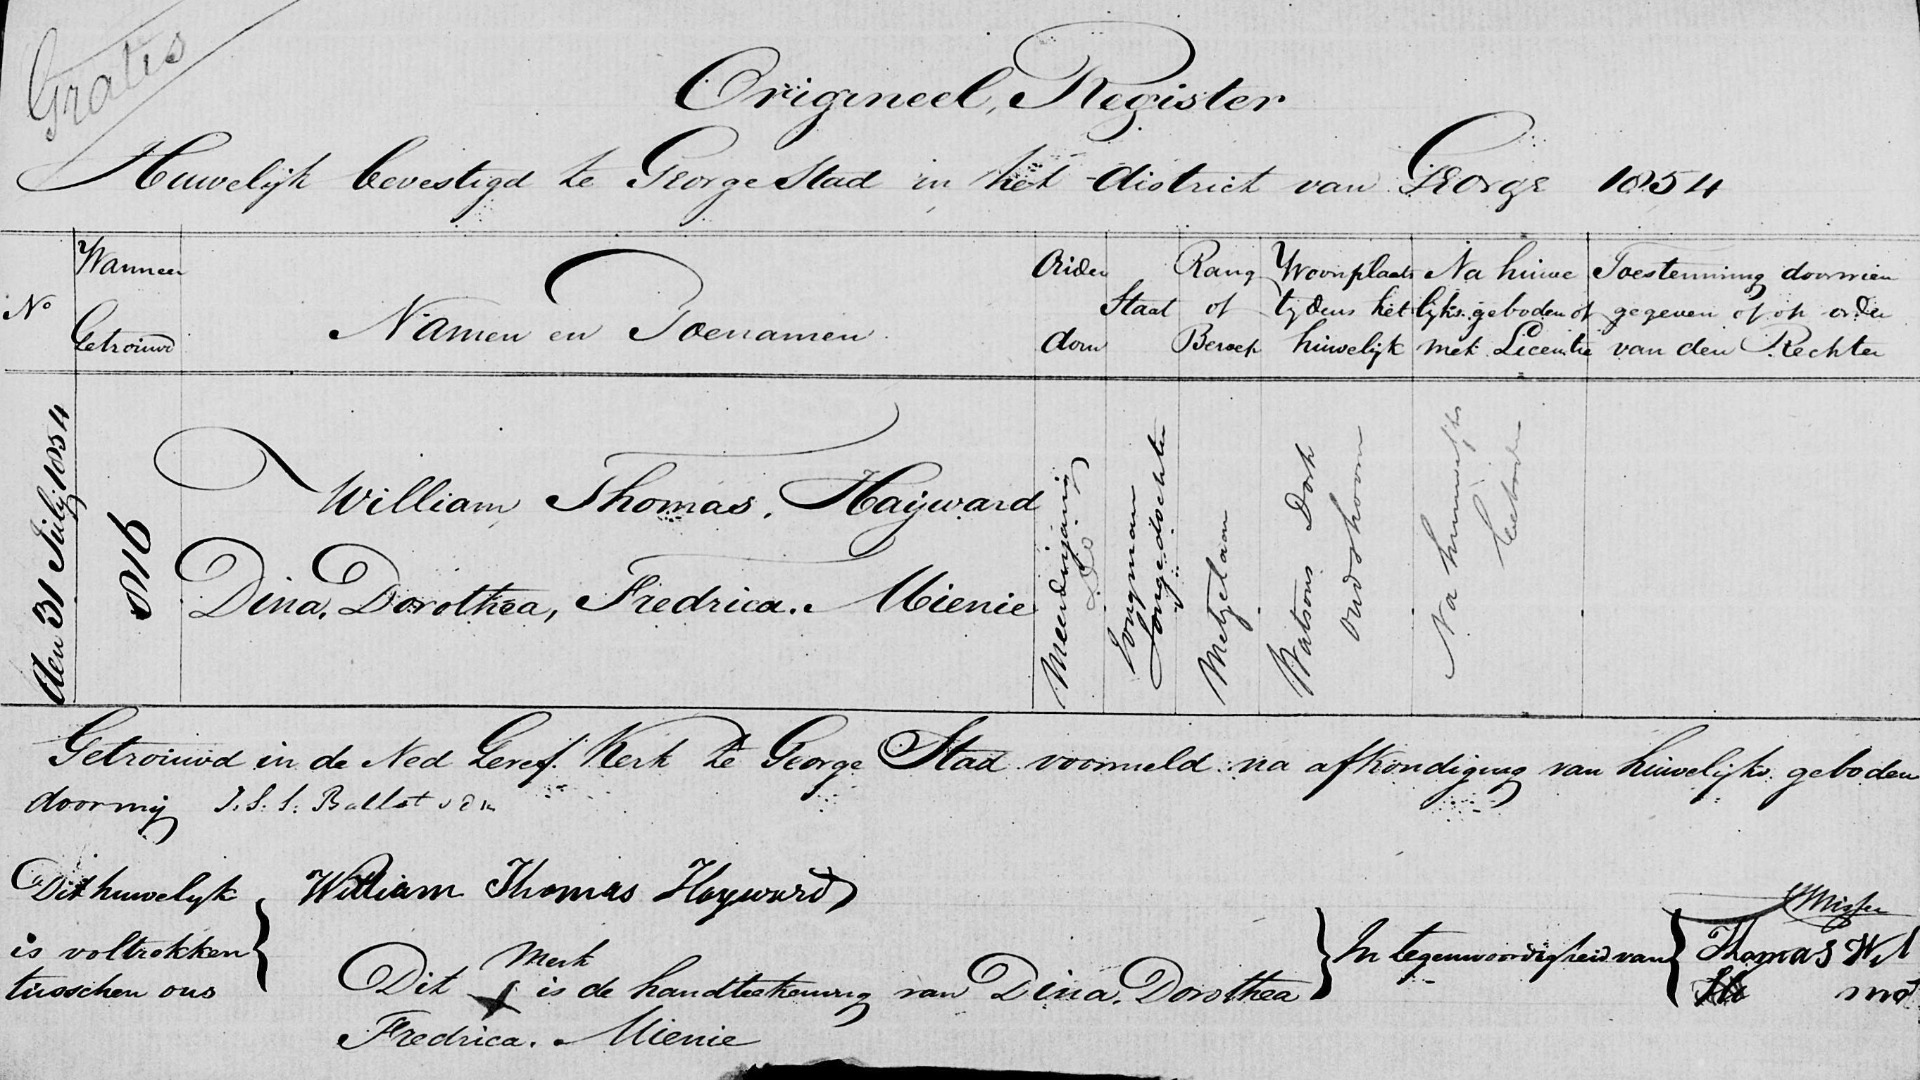 Gratis
Origineel Register
Huwelijk bevestigd te George Stad in het district van George 1854
No
Wanneer
Getrouwd
Namen en Toenamen
Ouder
dom
Staat
Rang
of
Beroep
Woonplaats
tydens het
huwelijk
Na huwe
lijks geboden of
met Licentie
Toestemming door wien
gegeven of op order
van den Rechter
den 31 July 1854
William Thomas Hayward
Dina Dorothea, Fredrica. Mienie
Meerderjarig
Do
Jongman
Jongedochter
Metzelaar
Watsons Dorp
Oudshoorn
Na huwelijks
Geboden
Getrouwd in de Ned Geref Kerk te George Stad voormeld na afkondiging van huwelijks geboden
door mij J. S. S. Ballot vdm
Dit huwelyk
is voltrokken
tusschen ons
William Thomas Hayward
Merk
Dit X is de handteekening van Dina. Dorothea
Fredrica. Mienie
In tegenwoordigheid van
Thomas